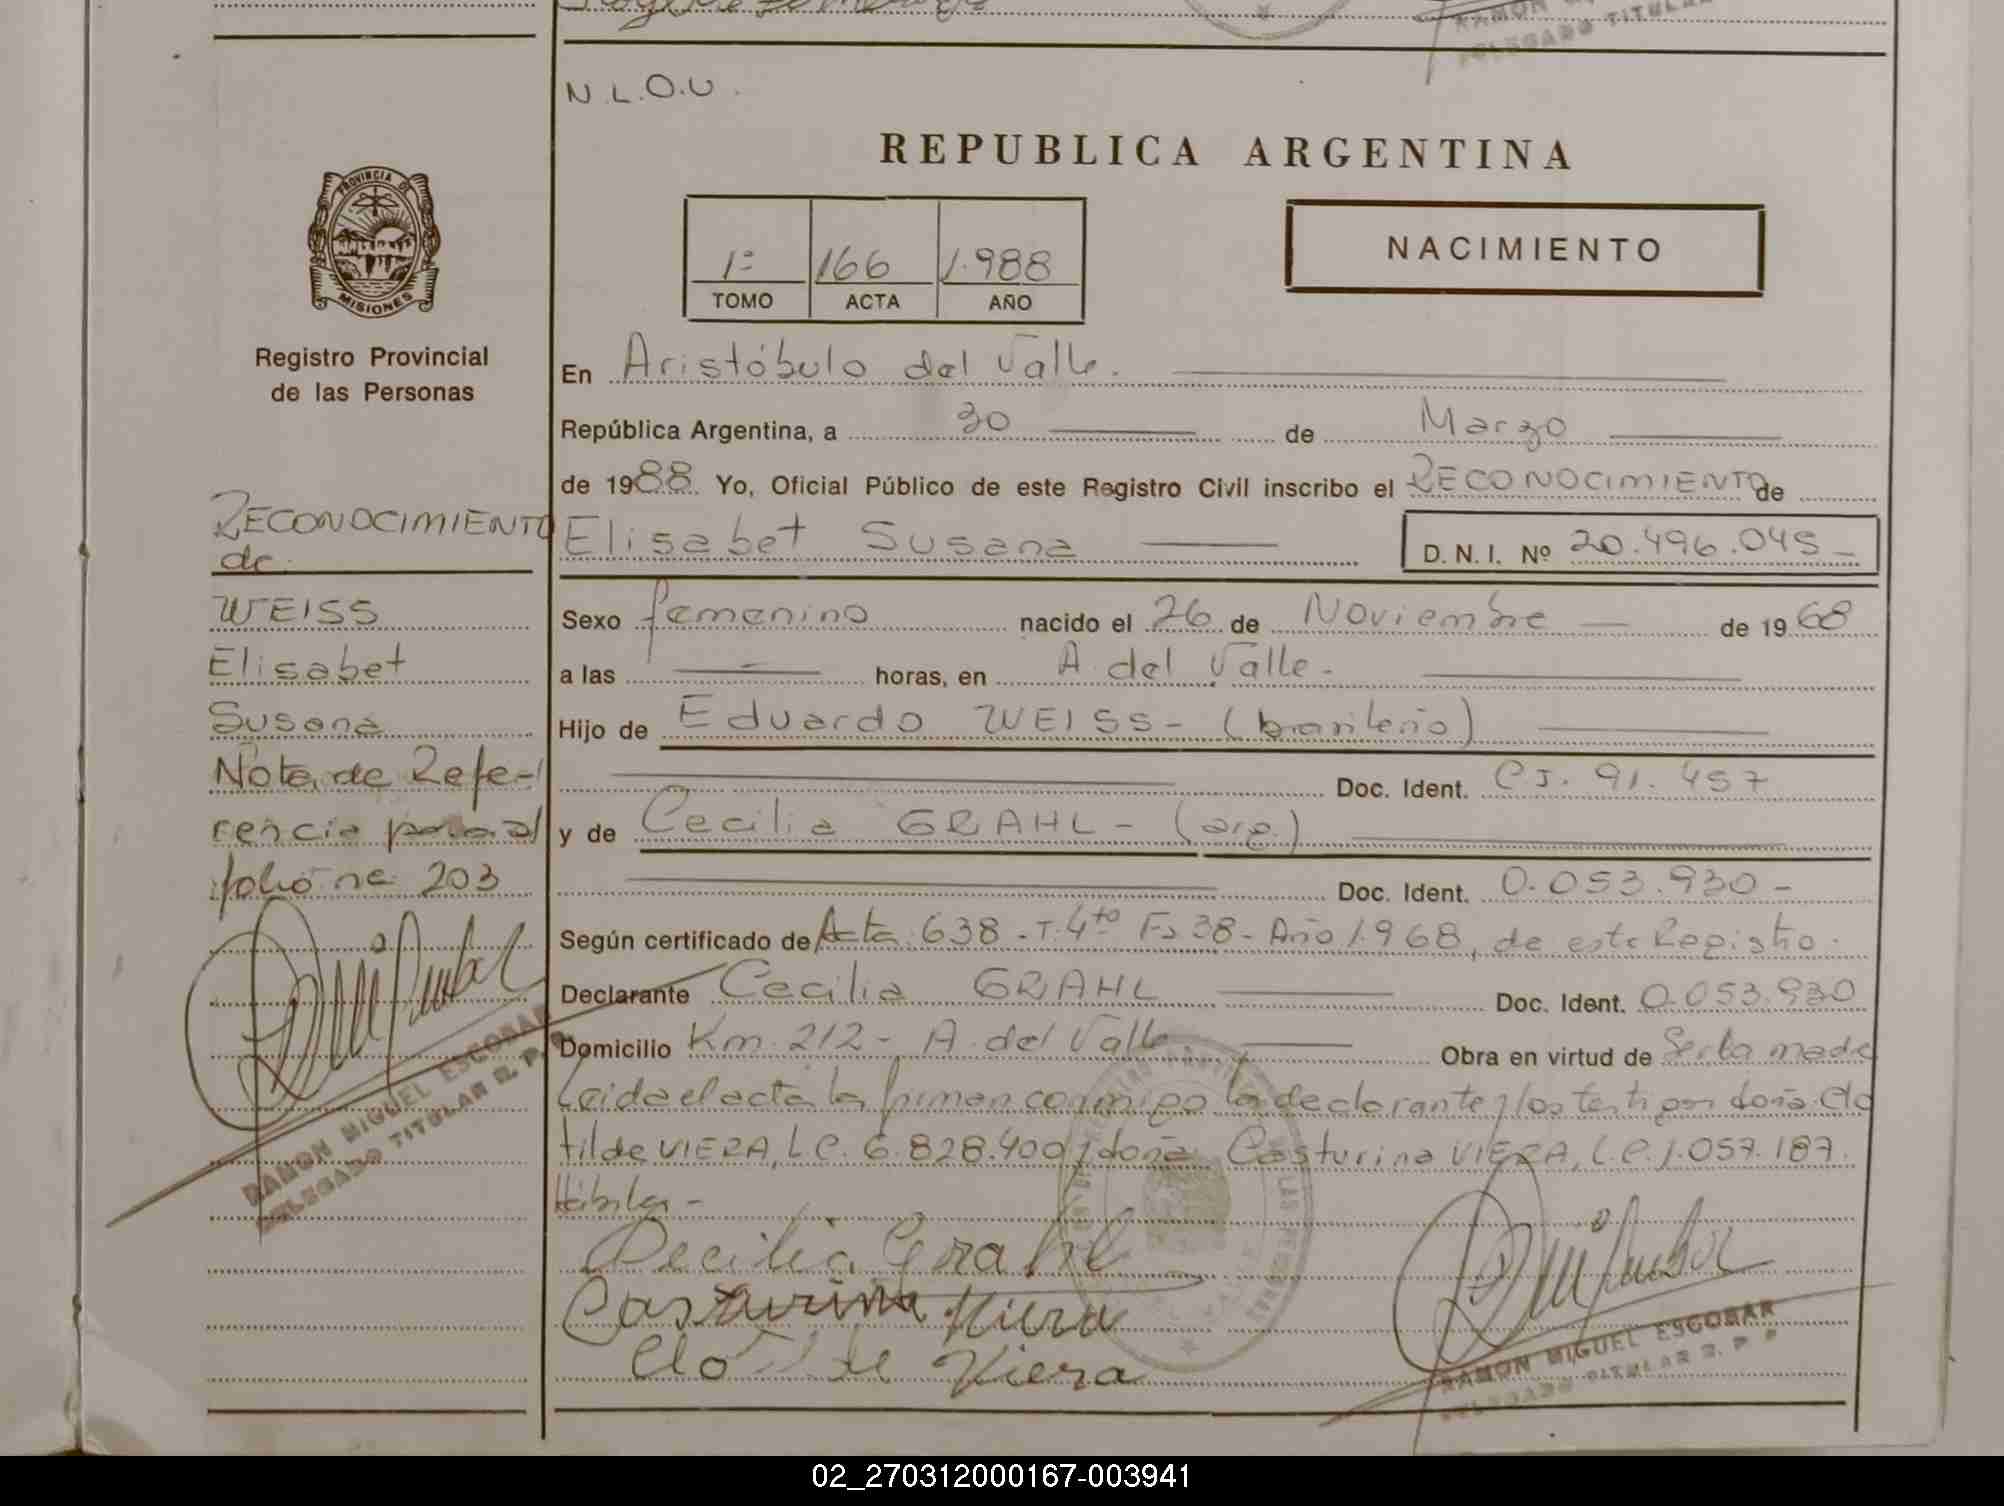 RAMON
DELEGADO TITULAR
N.L.O.U.
REPUBLICA ARGENTINA
PROVINCIA DE
MISIONES
1º 166 1.988
TOMO ACTA AÑO
NACIMIENTO
Registro Provincial
de las Personas
En Aristóbulo del Valle.
República Argentina, a 30 de Marzo
de 1988 Yo, Oficial Público de este Registro Civil inscribo el RECONOCIMIENTO de
Elisabet Susana D. N. I. Nº 20.496.045-
Sexo femenino nacido el 26 de Noviembre de 1968
a las horas, en A. del Valle.
Hijo de Eduardo WEISS - (brasileño)
Doc. Ident. CI. 91.457
y de Cecilia GRAHL - (arg.)
Doc. Ident. 0.053.930-
Según certificado de Acta 638 - T. 4to Fs 38 - Año 1.968, de este Registro.
Declarante Cecilia GRAHL Doc. Ident. 0.053.930
Domicilio Km. 212 - A. del Valle Obra en virtud de Ser la madre
Leida el acta la firman conmigo la declarante y los testigos doña Clo
tilde VIERA, L.C. 6.828.400 y doña Casturina VIERA, L.C. 1.057.187.
Hábiles-
Cecilia Grahl
Casturina Viera
Clotilde Viera
RAMON MIGUEL ESCOBAR
DELEGADO TITULAR R. P. P.
RECONOCIMIENTO
de
WEISS
Elisabet
Susana
Nota de Refe-
rencia
folio nº 203
RAMON MIGUEL ESCOBAR
DELEGADO TITULAR R. P. P.
02_270312000167-003941